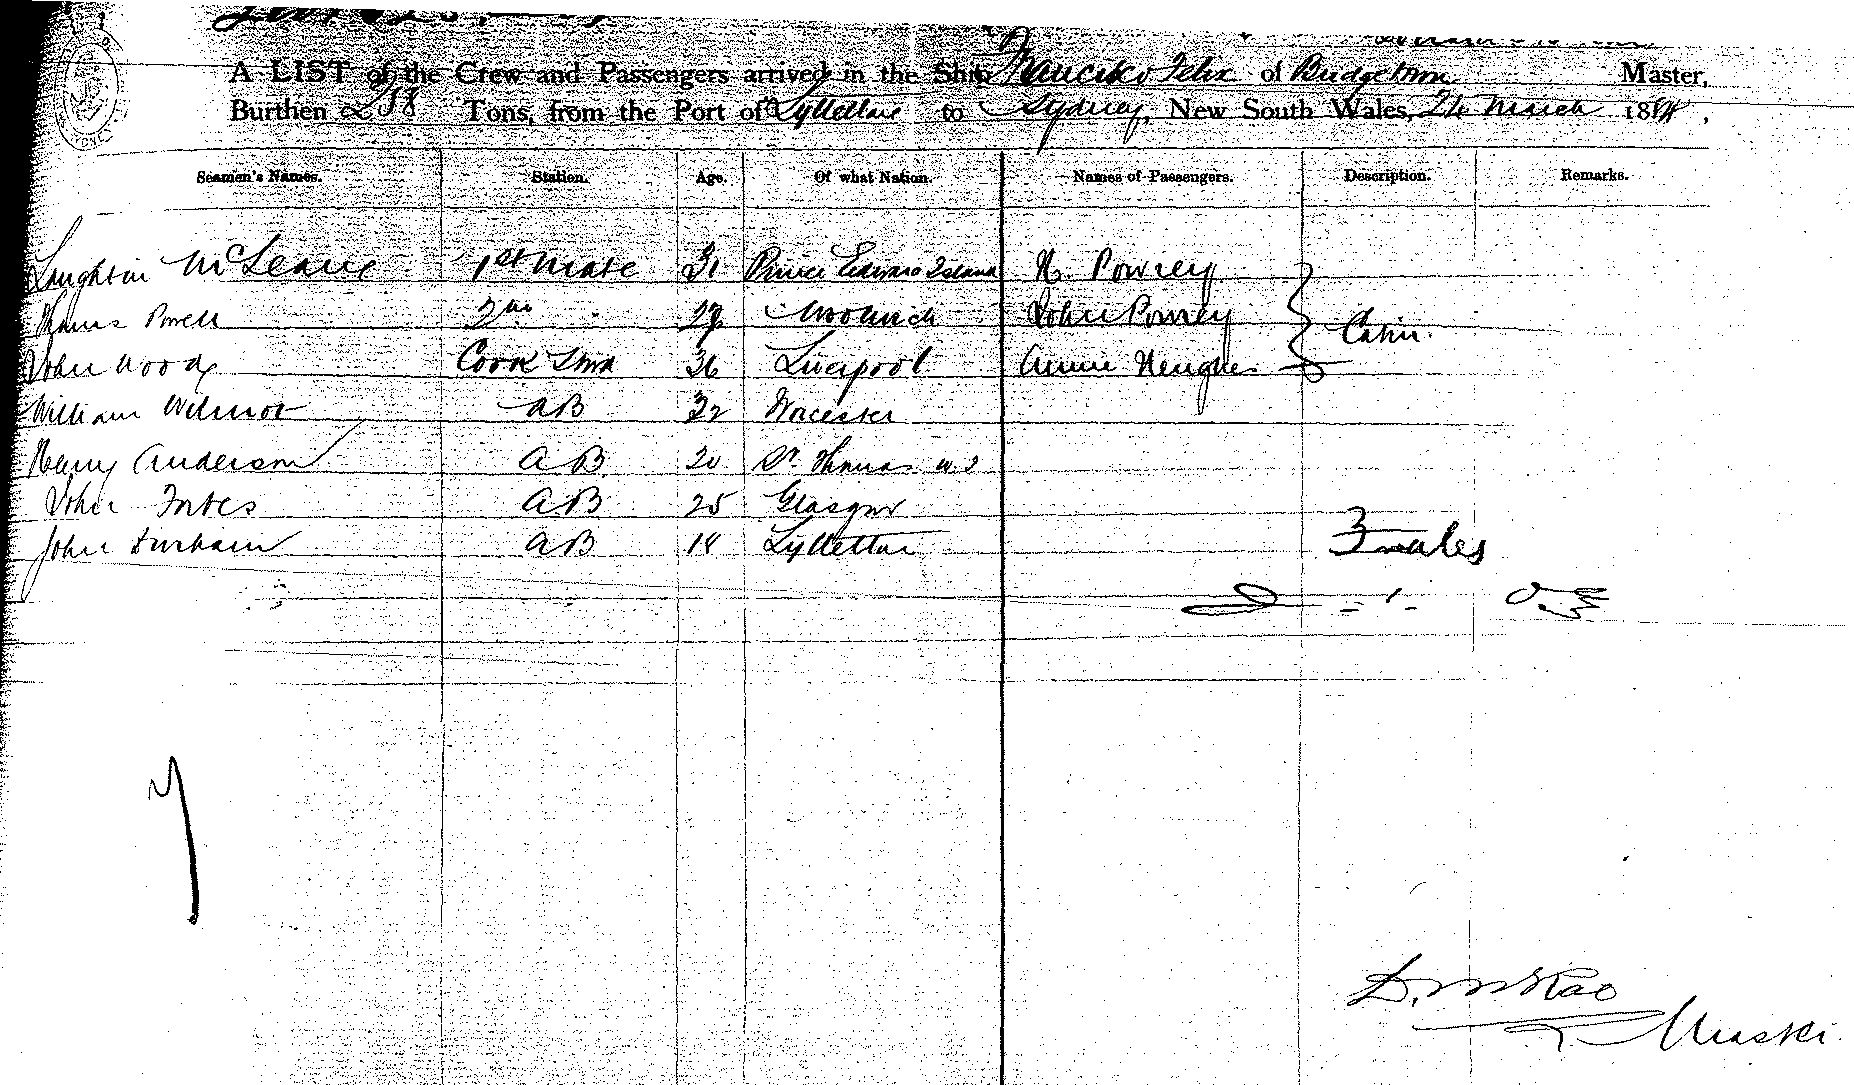 A LIST of the Crew and Passengers arrived in the Ship Francisko Felix of Bridgetown Master,
Burthen 258 Tons, from the Port of Lyttelton to Sydney, New South Wales, 26 March 1884.
Seamen's Names. Station. Age. Of what Nation. Names of Passengers. Description. Remarks.
McLeane 1st Mate 31 Prince Edward Island Powrey
Powell 2nd Woolwich John Powrey
John Woods Cook Stwd 36 Liverpool Annie Cabin.
William Wilmot AB 32 Worcester
Harry Anderson AB 20 St. Thomas W.I
John Forbes AB 25 Glasgow
John Durham AB 18 Lyttelton